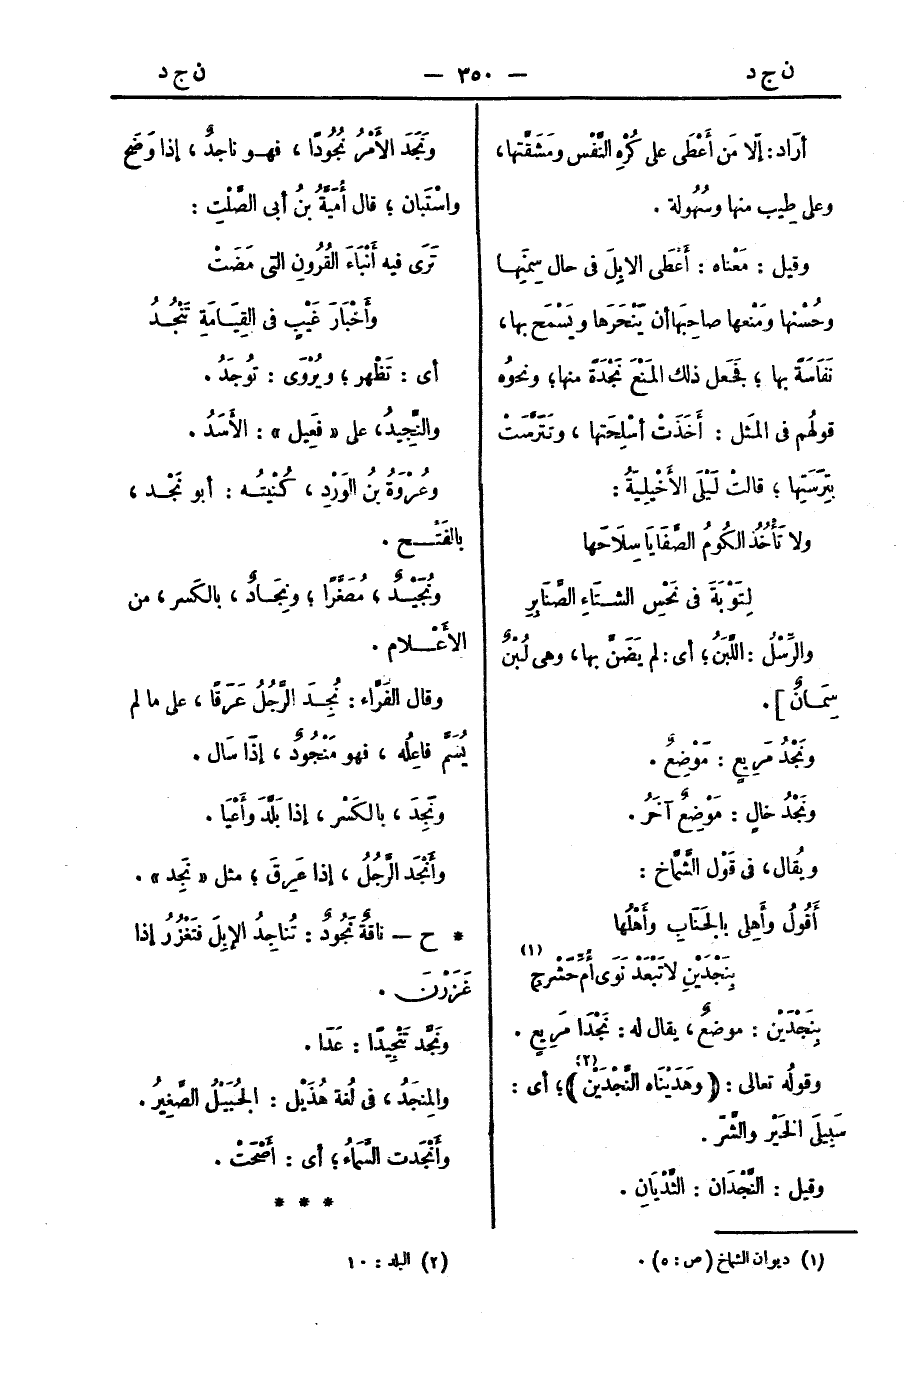 ن ج د — ٣٥٠ — ن ج د
أراد: إلّا مَن أَعْطَى على كُرْهِ النَّفْس ومَشَقَّتها،
وعلى طِيب منها وسُهُولة .
وقيل : مَعْناه : أَعْطَى الإبِلَ فى حال سِمَنِها
وحُسْنها ومَنْعها صاحِبَها أن يَنْحَرَها ويَسْمَح بها،
نَفَاسَةً بها ؛ فَجَعل ذلك المَنْعَ نَجْدَةً منها؛ ونحوُه
قولُهم فى المَثل : أَخَذَتْ أسْلِحَتها ، وتَتَرَّسَتْ
بِتِرَسَتِها ؛ قالتْ لَيْلَى الأَخْيلِيَّةُ :
ولا تَأْخُذ الكُومُ الصَّفَايَا سِلَاحَها
لِتَوْبَةَ فى نَحْسِ الشتاءِ الصَّنَابِرِ
والرِّسْلُ : اللَّبَنُ؛ أى: لم يَضَنَّ بها، وهى لُبْنٌ
سِمَانٌ ] .
ونَجْدُ مَرِيعٍ : مَوْضِعٌ .
ونَجْدُ خالٍ : مَوْضِعٌ آخَرُ .
ويُقال، فى قَوْل الشَّمَّاخ :
أَقُولُ وأَهْلِى بالجَنَابِ وأَهْلُها
بِنَجْدَيْنِ لا تَبْعَدْ نَوَى أُمِّ حَشْرجِ (١)
بِنَجْدَيْن : موضعٌ، يقال له : نَجْدَا مَرِيعٍ .
وقولُه تعالى : ﴿ وهَدَيْنَاه النَّجْدَيْنِ ﴾(٢)؛ أى :
سَبِيلَى الخَيْر والشَّرّ .
وقيل : النَّجْدَان : الثَّدْيَانِ .
ونَجَدَ الأمْرُ نُجُودًا ، فهو ناجِدٌ ، إذا وَضَح
واسْتَبان ؛ قال أُمَيَّةُ بنُ أبى الصَّلْتِ :
تَرَى فيه أَنْبَاءَ القُرُونِ التى مَضَتْ
وأَخْبَارَ غَيْبٍ فى القِيَامَةِ تَنْجُدُ
أى : تَظْهر ؛ ويُرْوَى : تُوجَدُ .
والنَّجِيدُ، على « فَعِيل » : الأَسَدُ .
وعُرْوَةُ بنُ الوَرْدِ ، كُنْيتُه : أبو نَجْد ،
بالفَتْح .
ونُجَيْدٌ ، مُصَغَّرًا ؛ ونِجَادٌ ، بالكَسر ، من
الأَعْلام .
وقال الفَرَّاء : نُجِدَ الرَّجُلُ عَرَقًا ، على ما لم
يُسَمَّ فاعِلُه ، فهو مَنْجُودٌ ، إذَا سَال .
ونَجِدَ ، بالكَسْر ، إذا بَلَّدَ وأَعْيَا .
وأَنْجَد الرَّجُلُ ، إذا عَرِقَ ؛ مثل « نَجِد » .
* ح — ناقةٌ نَجُودٌ : تُناجِدُ الإبِلَ فتَغْزُر إذا
غَزَرْنَ .
ونَجَّد تَنْجِيدًا : عَدَا .
والمنجَدُ ، فى لُغة هُذَيْل : الجُبَيْلُ الصَّغِيرُ .
وأَنْجَدت السَّمَاءُ ؛ أى : أَصْحَتْ .
* * *
(١) ديوان الشماخ (ص : ٥) .
(٢) البلد : ١٠